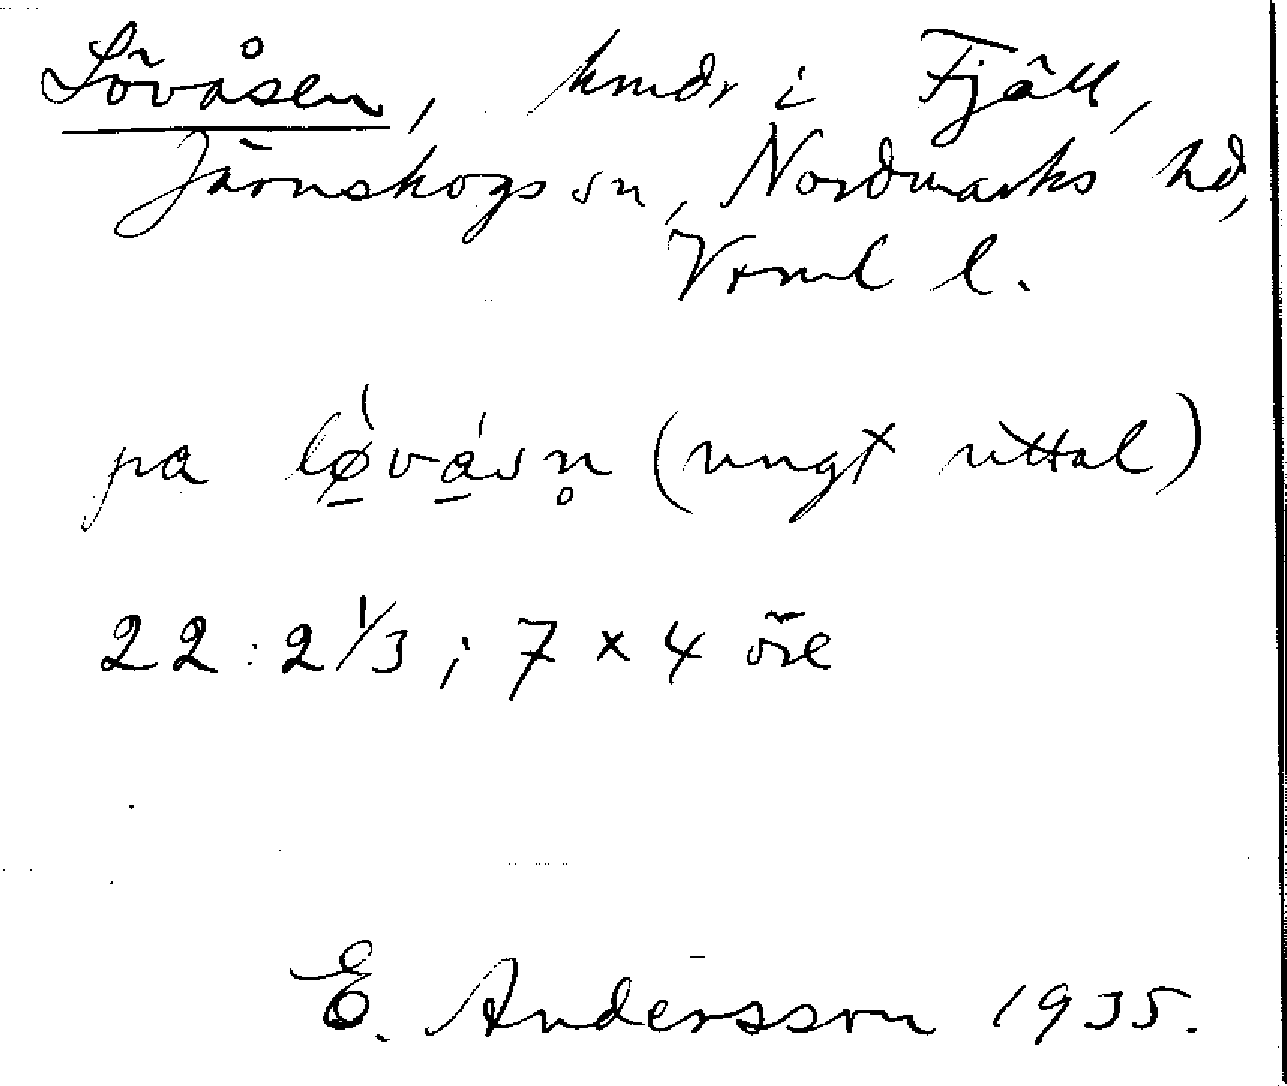 Lövåsen, hmdr i Fjäll,
Järnskogs sn, Nordmarks hd,
Vrml l.
pa lø̠̀vá̠sn̥ (ungt uttal)
22:2 1/3; 7 x 4 öre
E. Andersson 1935.